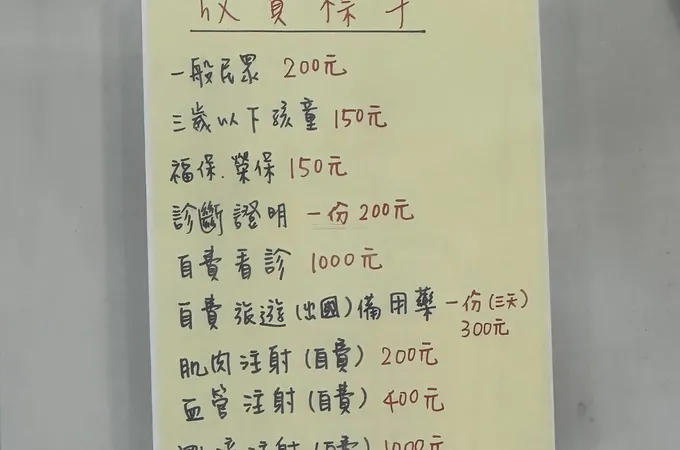 收費標準
一般民眾 200元
三歲以下孩童 150元
福保.榮保 150元
診斷證明 一份 200元
自費看診 1000元
自費旅遊(出國)備用藥 一份(三天)
300元
肌肉注射(自費) 200元
血管注射(自費) 400元
注射(自費) 1000元